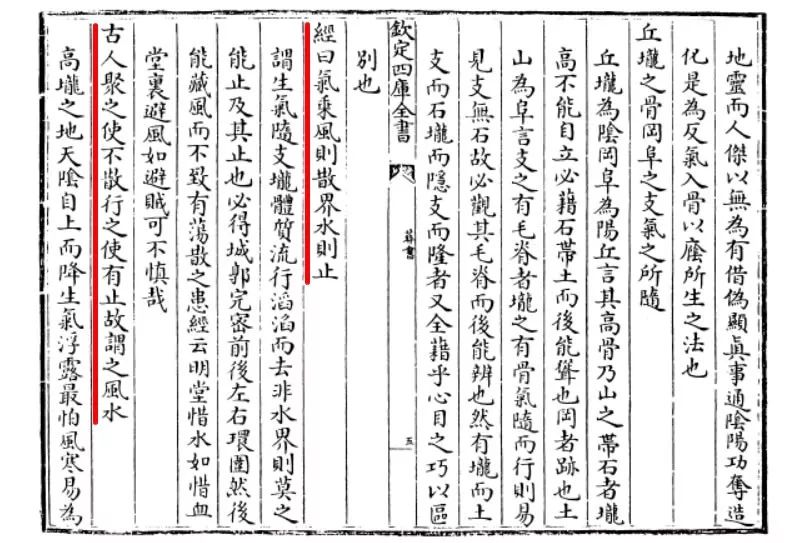 地靈而人傑以無為有借偽顯真事通陰陽功奪造
化是為反氣入骨以廕所生之法也
丘壠之骨岡阜之支氣之所隨
丘壠為陰岡阜為陽丘言其高骨乃山之帶石者壠
高不能自立必藉石帶土而後能聳也岡者跡也土
山為阜言支之有毛脊者壠之有骨氣隨而行則易
見支無石故必觀其毛脊而後能辨也然有壠而土
支而石壠而隱支而隆者又全藉乎心目之巧以區
欽定四庫全書
葬書
五
別也
經曰氣乘風則散界水則止
謂生氣隨支壠體質流行滔滔而去非水界則莫之
能止及其止也必得城郭完密前後左右環圍然後
能藏風而不致有蕩散之患經云明堂惜水如惜血
堂裏避風如避賊可不慎哉
古人聚之使不散行之使有止故謂之風水
高壠之地天陰自上而降生氣浮露最怕風寒易為